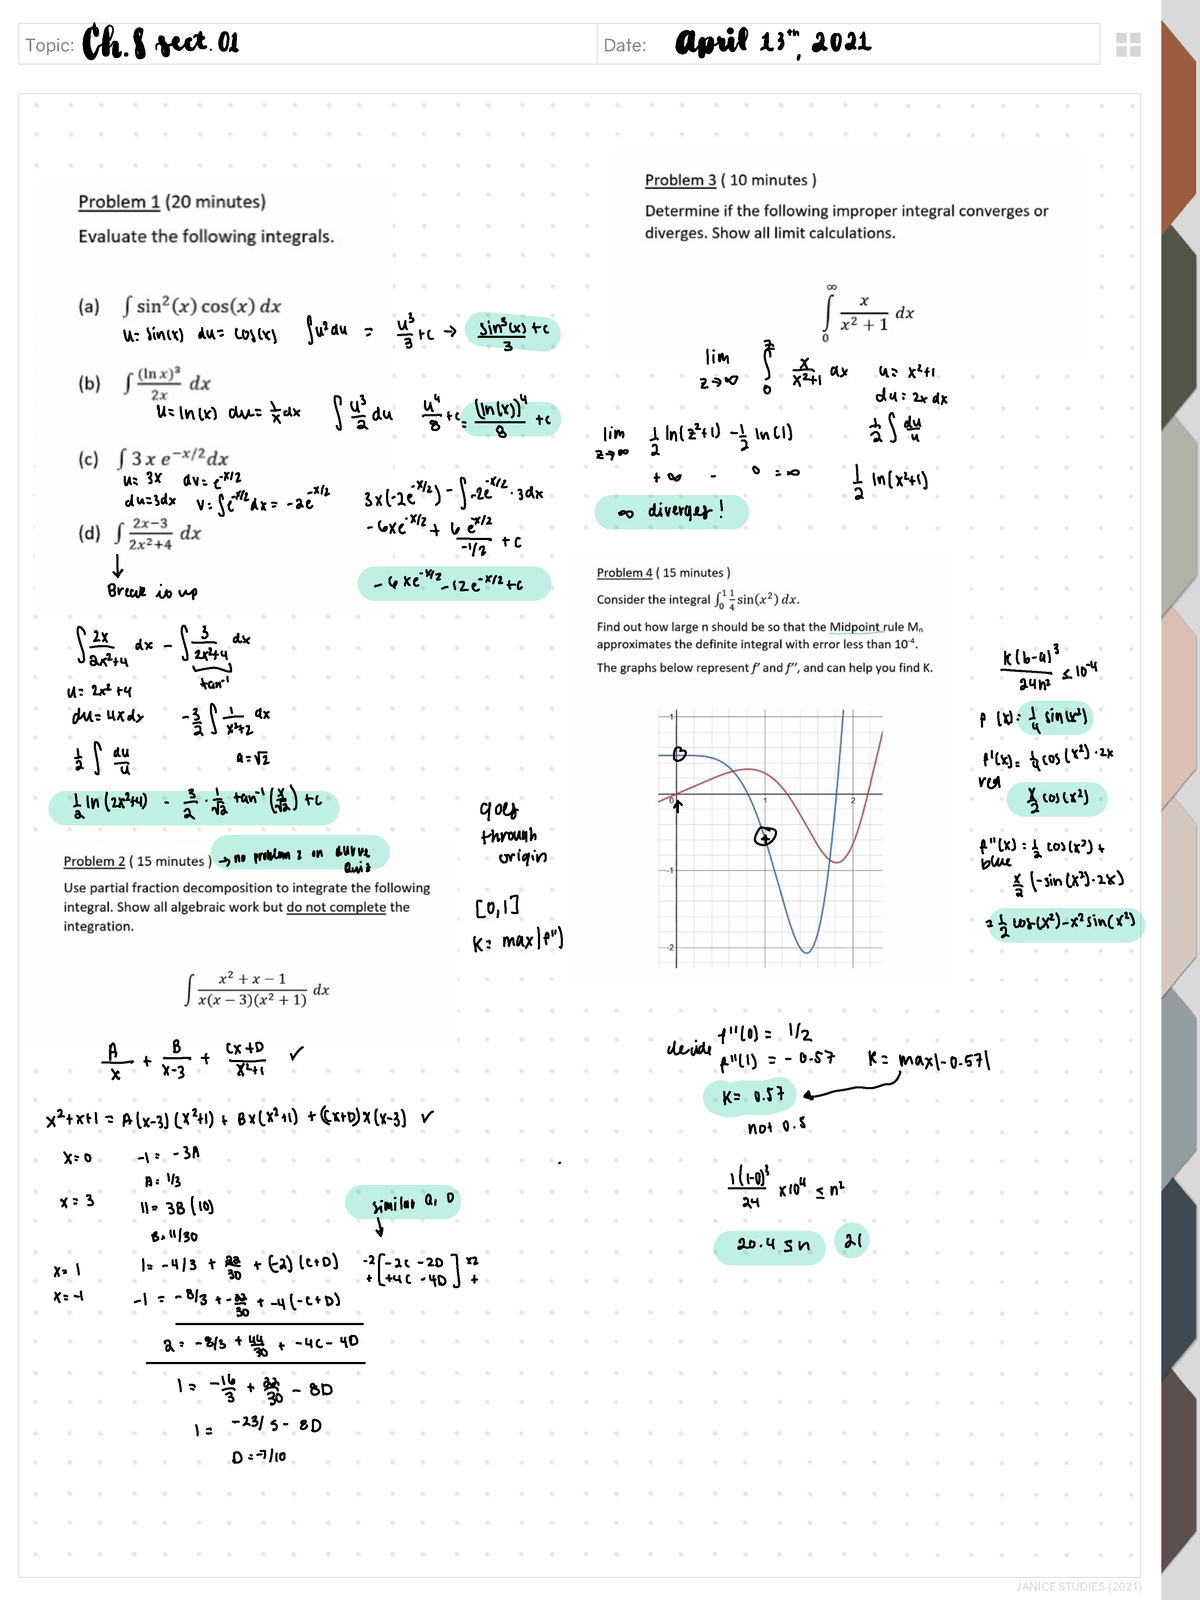 Topic: Ch. 8 sect. 01
Date: April 13th, 2021
Problem 1 (20 minutes)
Evaluate the following integrals.
(a) ∫ sin²(x) cos(x) dx
u = sin(x) du = cos(x) ∫u²du = u³/3 + c → sin³(x)/3 + c
(b) ∫ (ln x)³/2x dx
u = ln(x) du = 1/x dx ∫ u³/2 du u⁴/8 + c = (ln(x))⁴/8 + c
(c) ∫ 3 x e^(-x/2) dx
u = 3x dv = e^(-x/2)
du = 3dx v = ∫e^(-x/2) dx = -2e^(-x/2)
3x(-2e^(-x/2)) - ∫-2e^(-x/2) · 3dx
-6xe^(-x/2) + 6e^(x/2)/(-1/2) + c
-6xe^(-x/2) - 12e^(-x/2) + c
(d) ∫ (2x-3)/(2x²+4) dx
↓
Break is up
∫ 2x/(2x²+4) dx - ∫ 3/(2x²+4) dx
tan⁻¹
u = 2x² + 4
du = 4x dx
-3/2 ∫ 1/(x²+2) dx
1/2 ∫ du/u
a = √2
1/2 ln(2x²+4) - 3/2 · 1/√2 tan⁻¹(x/√2) + c
Problem 2 ( 15 minutes ) → no problem 2 on
Quiz
Use partial fraction decomposition to integrate the following
integral. Show all algebraic work but do not complete the
integration.
∫ (x² + x − 1)/(x(x − 3)(x² + 1)) dx
A/x + B/(x-3) + (Cx+D)/(x²+1) ✓
x²+x+1 = A(x-3)(x²+1) + Bx(x²+1) + (Cx+D)x(x-3) ✓
x = 0 -1 = -3A
A = 1/3
x = 3 11 = 3B(10)
B = 11/30
similar a, D
↓
x = 1 1 = -4/3 + 22/30 + (-2)(C+D)
x = -1 -1 = -8/3 + -22/30 + -4(-C+D)
-2[-2C -2D] x2
+[+4C -4D] +
2 = -8/3 + 44/30 + -4C - 4D
1 = -16/3 + 22/30 - 8D
1 = -23/5 - 8D
D = -7/10
Problem 3 ( 10 minutes )
Determine if the following improper integral converges or
diverges. Show all limit calculations.
∫₀^∞ x/(x² + 1) dx
lim z→∞ ∫₀^z x/(x²+1) dx
u = x²+1
du = 2x dx
1/2 ∫ du/u
1/2 ln(x²+1)
lim z→∞ 1/2 ln(z²+1) - 1/2 ln(1)
+∞ - 0 = ∞
∞ diverges!
Problem 4 ( 15 minutes )
Consider the integral ∫₀¹ 1/4 sin(x²) dx.
Find out how large n should be so that the Midpoint rule Mₙ
approximates the definite integral with error less than 10⁻⁴.
The graphs below represent f′ and f″, and can help you find K.
1
0
1
2
-1
-2
goes
through
origin
[0,1]
K = max|f")
K(b-a)³/24n² ≤ 10⁻⁴
f(x) = 1/4 sin(x²)
f'(x) = 1/4 cos(x²) · 2x
red
x/2 cos(x²)
f"(x) = 1/2 cos(x²) +
blue
x/2 (-sin(x²)·2x)
= 1/2 cos(x²) - x² sin(x²)
decide
f"(0) = 1/2
f"(1) = -0.57 K = max|-0.57|
K = 0.57
not 0.5
1(1-0)³/24 x10⁴ ≤ n²
20.4 ≤ n 21
JANICE STUDIES (2021)